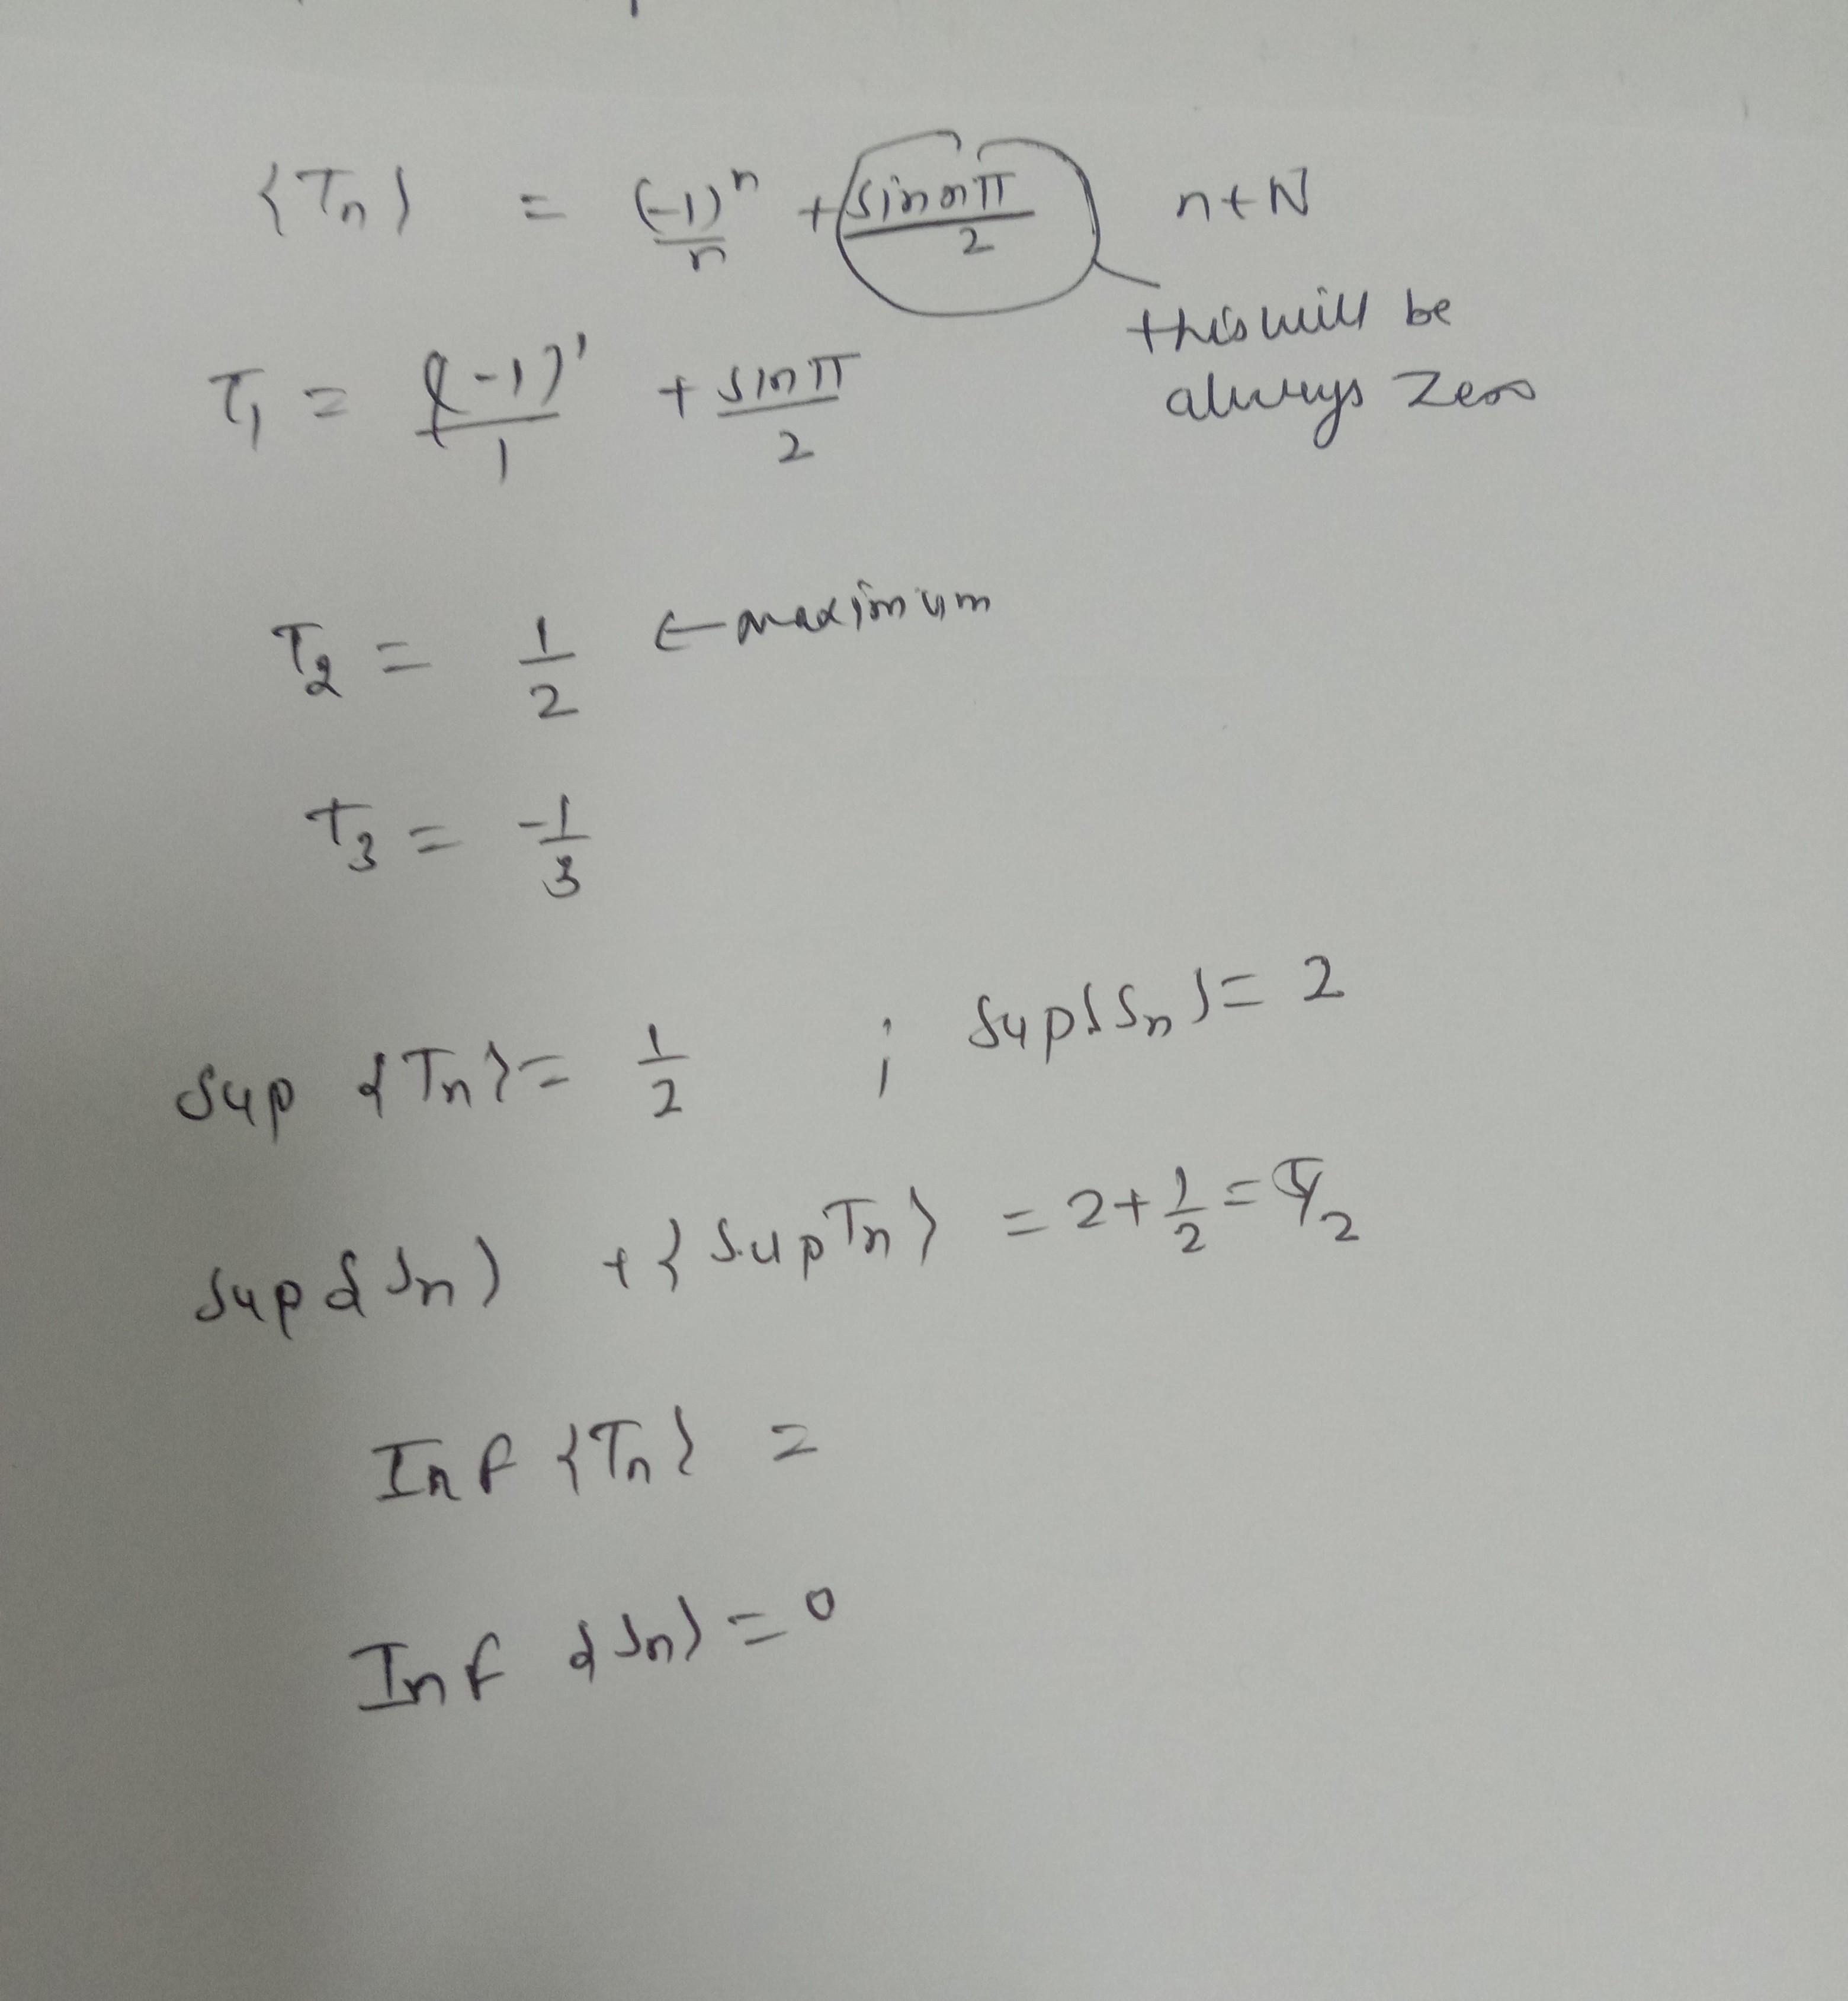 {Tn} = (-1)^n/n + sin nπ/2 n+N
this will be
always zero
T1 = (-1)^1/1 + sin π/2
T2 = 1/2 ← maximum
T3 = -1/3
sup {Tn} = 1/2 ; sup{Sn} = 2
sup{Sn} + {sup Tn} = 2 + 1/2 = 5/2
Inf {Tn} =
Inf {Sn} = 0